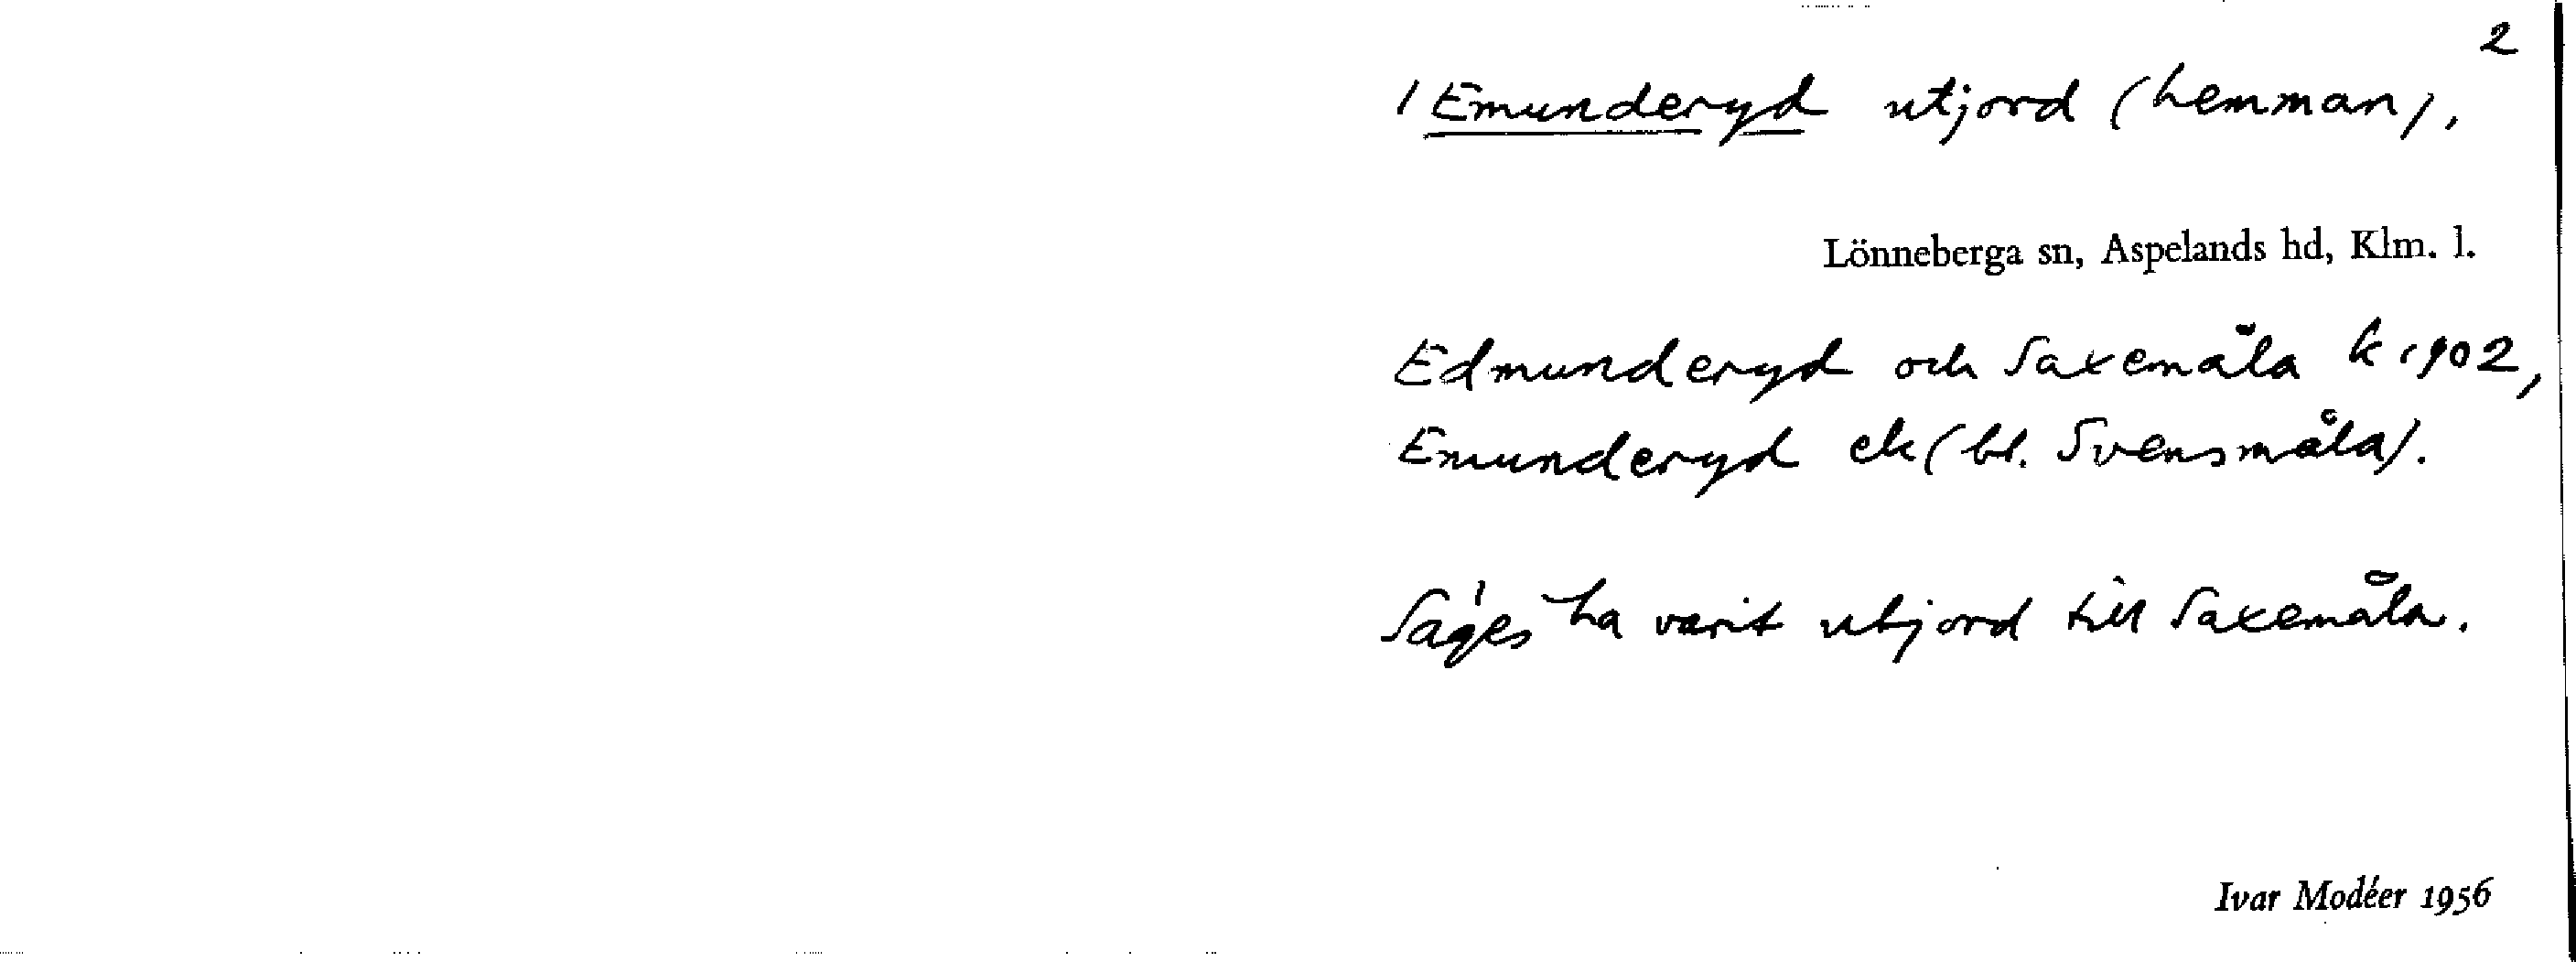 2
1 Emunderyd utjord (hemman),
Lönneberga sn, Aspelands hd, Klm. l.
Edmunderyd och Saxemåla k 1902,
Emunderyd ek (bl. Svensmåla).
Säges ha varit utjord till Saxemåla.
Ivar Modéer 1956